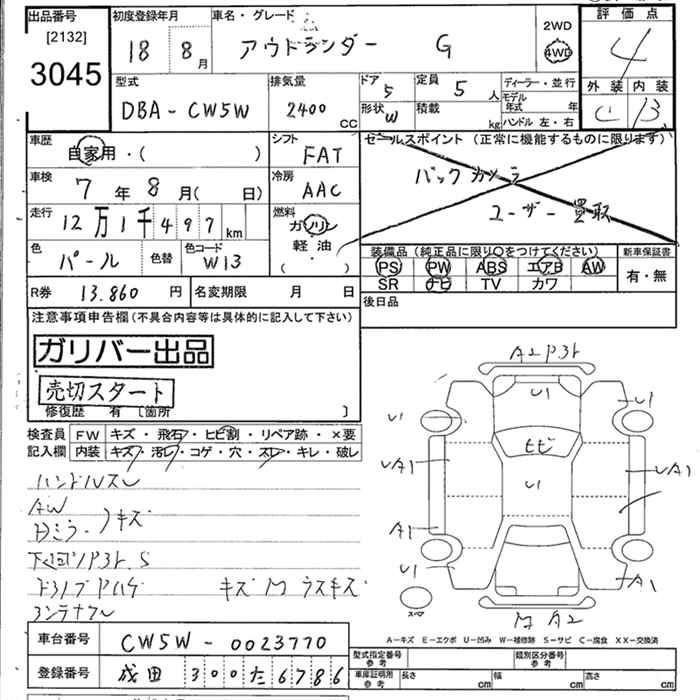 出品番号
[2132]
3045
初度登録年月
18 8月
車名・グレード
アウトランダー G
2WD
4WD
評価点
4
外装 内装
C B
型式
DBA-CW5W
排気量
2400 CC
ドア 5
形状 W
定員 5 人
積載 kg
ディーラー・並行
モデル年式 年
ハンドル 左・右
車歴
自家用・( )
シフト
FAT
セールスポイント(正常に機能するものに限ります)
バックカメラ
ユーザー買取
車検
7年8月( 日)
冷房
AAC
走行
12万1千497km
燃料
ガソリン
軽油・
( )
色
パール
色替
色コード
W13
装備品(純正品に限り○をつけてください)
PS PW ABS エアB AW
SR ナビ TV カワ
新車保証書
有・無
R券 13.860円
名変期限 月 日
後日品
注意事項申告欄(不具合内容等は具体的に記入して下さい)
ガリバー出品
売切スタート
修復歴 有 [箇所 ]
検査員記入欄
FW キズ・飛石・ヒビ割・リペア跡・×要
内装 キズ・汚レ・コゲ・穴・スレ・キレ・破レ
ハンドルスレ
AW
キズ
キズ
A2
U1
U1
U1
ヒビ
A1
U1
A1
A1
U1
A1
スペア
A2
A-キズ E-エクボ U-凹み W-補修跡 S-サビ C-腐食 XX-交換済
車台番号
CW5W-0023770
登録番号
成田 300 た 6786
型式指定番号
参考
類別区分番号
参考
車庫証明用
参考
長さ cm
幅 cm
高さ cm